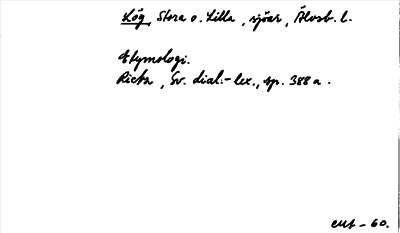 Lög, Stora o. Lilla, sjöar, Älvsb. l.
Etymologi.
Rietz, Sv. dial.-lex., sp. 388 a.
EWt - 60.